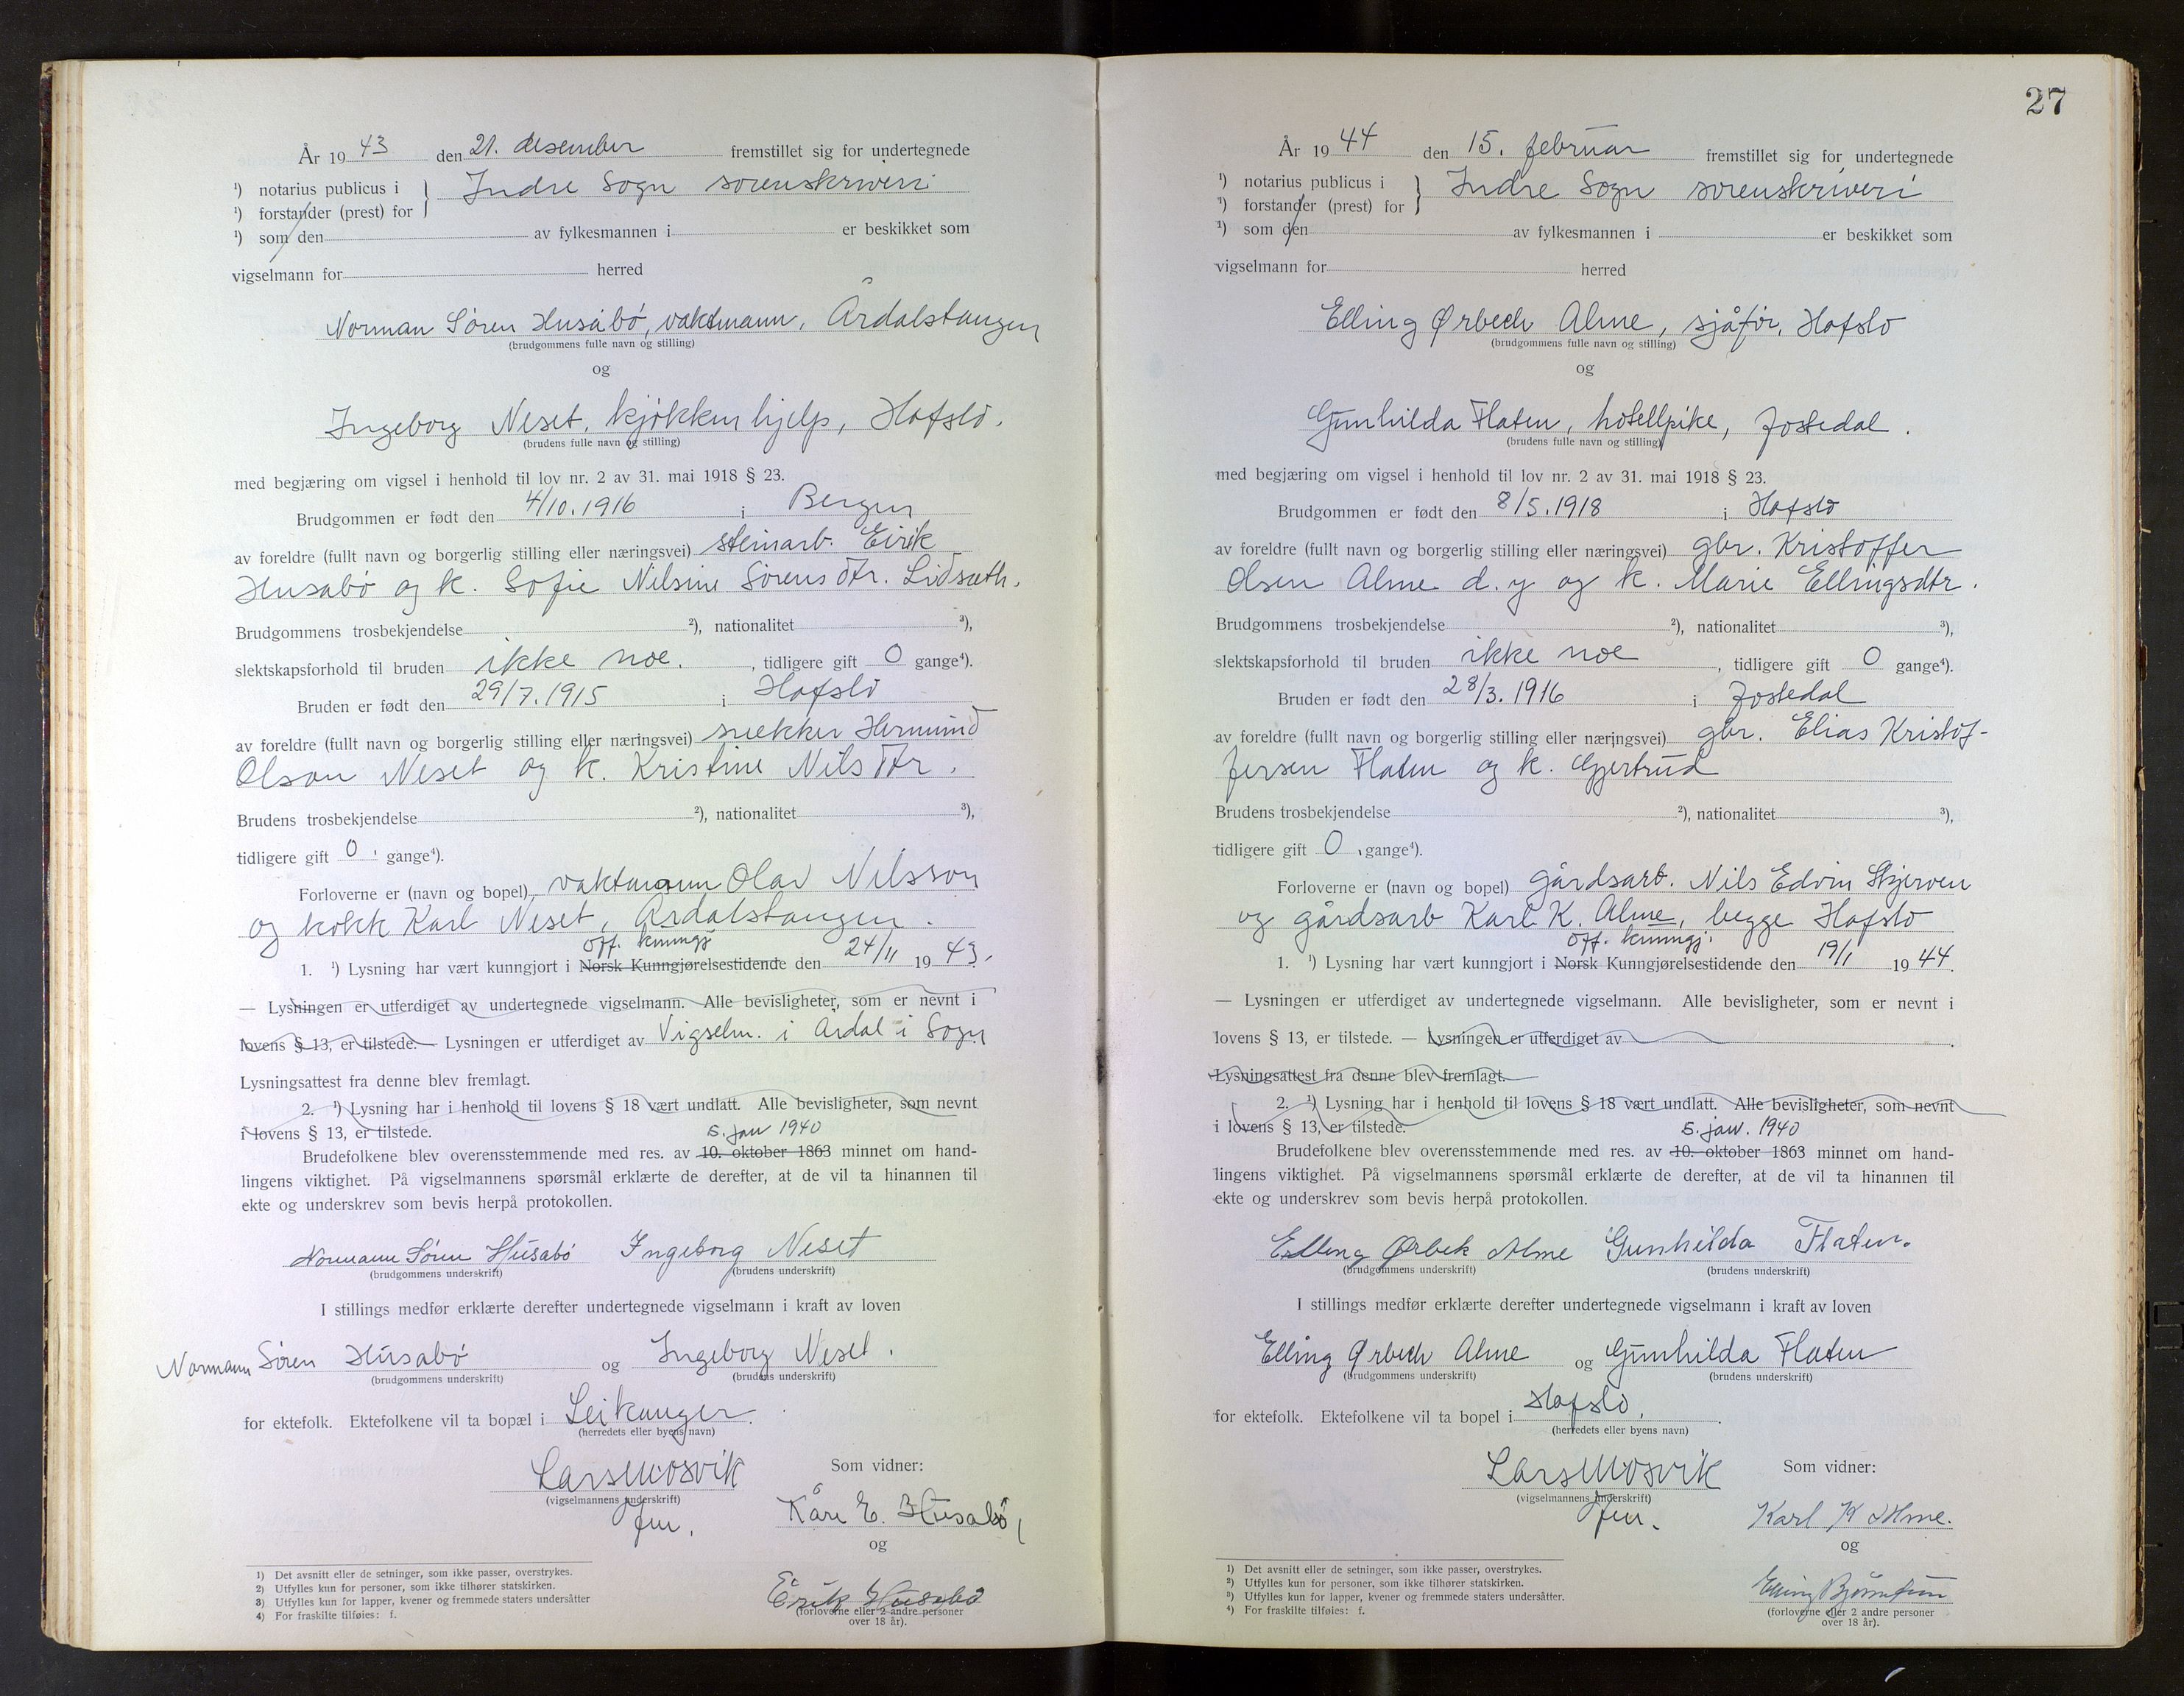 År 19 43 den 21. desember fremstillet sig for undertegnede
¹) notarius publicus i } Indre Sogn sorenskriveri
¹) forstander (prest) for
¹) som den av fylkesmannen i er beskikket som
vigselmann for herred
Norman Søren Husabø, vaktmann, Årdalstangen
(brudgommens fulle navn og stilling)
og
Ingeborg Neset, kjøkkenhjelp, Hafslo.
(brudens fulle navn og stilling)
med begjæring om vigsel i henhold til lov nr. 2 av 31. mai 1918 § 23.
Brudgommen er født den 4/10.1916 i Bergen
av foreldre (fullt navn og borgerlig stilling eller næringsvei) steinarb. Eirik
Husabø og k. Sofie Nilsine Sørensdtr. Lidsæth.
Brudgommens trosbekjendelse ²), nationalitet ³),
slektskapsforhold til bruden ikke noe. , tidligere gift 0 gange⁴).
Bruden er født den 29/7.1915 i Hafslo
av foreldre (fullt navn og borgerlig stilling eller næringsvei) snekker Hermund
Olson Neset og k. Kristine Nilsdtr.
Brudens trosbekjendelse ²), nationalitet ³),
tidligere gift 0. gange⁴).
Forloverne er (navn og bopel) vaktmann Olav Nilsson
og kokk Karl Neset, Årdalstangen.
off. kunngj
1. ¹) Lysning har vært kunngjort i Norsk Kunngjørelsestidende den 24/11 19 43.
— Lysningen er utferdiget av undertegnede vigselmann. Alle bevisligheter, som er nevnt i
lovens § 13, er tilstede. — Lysningen er utferdiget av Vigselm. i Årdal i Sogn
Lysningsattest fra denne blev fremlagt.
2. ¹) Lysning har i henhold til lovens § 18 vært undlatt. Alle bevisligheter, som nevnt
i lovens § 13, er tilstede.
5. jan 1940
Brudefolkene blev overensstemmende med res. av 10. oktober 1863 minnet om hand-
lingens viktighet. På vigselmannens spørsmål erklærte de derefter, at de vil ta hinannen til
ekte og underskrev som bevis herpå protokollen.
Normann Søren Husabø Ingeborg Neset
(brudgommens underskrift) (brudens underskrift)
I stillings medfør erklærte derefter undertegnede vigselmann i kraft av loven
Normann Søren Husabø og Ingeborg Neset.
(brudgommens underskrift) (brudens underskrift)
for ektefolk. Ektefolkene vil ta bopæl i Leikanger.
(herredets eller byens navn)
Lars Mosvik Som vidner:
(vigselmannens underskrift)
fm. Kåre E. Husabø
og
Erik Husabø
(forloverne eller 2 andre personer
over 18 år).
1) Det avsnitt eller de setninger, som ikke passer, overstrykes.
2) Utfylles kun for personer, som ikke tilhører statskirken.
3) Utfylles kun for lapper, kvener og fremmede staters undersåtter
4) For fraskilte tilføies: f.
27
År 19 44 den 15. februar fremstillet sig for undertegnede
¹) notarius publicus i } Indre Sogn sorenskriveri
¹) forstander (prest) for
¹) som den av fylkesmannen i er beskikket som
vigselmann for herred
Elling Ørbech Alme, sjåfør, Hafslo
(brudgommens fulle navn og stilling)
og
Gunhilda Flaten, hotellpike, Jostedal.
(brudens fulle navn og stilling)
med begjæring om vigsel i henhold til lov nr. 2 av 31. mai 1918 § 23.
Brudgommen er født den 8/5.1918 i Hafslo
av foreldre (fullt navn og borgerlig stilling eller næringsvei) gbr. Kristoffer
Olsen Alme d.y og k. Marie Ellingsdtr.
Brudgommens trosbekjendelse ²), nationalitet ³),
slektskapsforhold til bruden ikke noe , tidligere gift 0 gange⁴).
Bruden er født den 28/3.1916 i Jostedal
av foreldre (fullt navn og borgerlig stilling eller næringsvei) gbr. Elias Kristof-
fersen Flaten og k. Gjertrud
Brudens trosbekjendelse ²), nationalitet ³),
tidligere gift 0. gange⁴).
Forloverne er (navn og bopel) gårdsarb. Nils Edvin Skjerven
og gårdsarb Karl K. Alme, begge Hafslo
off. kunngj.
1. ¹) Lysning har vært kunngjort i Norsk Kunngjørelsestidende den 19/1 19 44.
— Lysningen er utferdiget av undertegnede vigselmann. Alle bevisligheter, som er nevnt i
lovens § 13, er tilstede. — Lysningen er utferdiget av .
Lysningsattest fra denne blev fremlagt.
2. ¹) Lysning har i henhold til lovens § 18 vært undlatt. Alle bevisligheter, som nevnt
i lovens § 13, er tilstede.
5. jan. 1940
Brudefolkene blev overensstemmende med res. av 10. oktober 1863 minnet om hand-
lingens viktighet. På vigselmannens spørsmål erklærte de derefter, at de vil ta hinannen til
ekte og underskrev som bevis herpå protokollen.
Elling Ørbek Alme Gunhilda Flaten.
(brudgommens underskrift) (brudens underskrift)
I stillings medfør erklærte derefter undertegnede vigselmann i kraft av loven
Elling Ørbech Alme og Gunhilda Flaten
(brudgommens underskrift) (brudens underskrift)
for ektefolk. Ektefolkene vil ta bopel i Hafslo.
(herredets eller byens navn)
Lars Mosvik Som vidner:
(vigselmannens underskrift)
fm. Karl K Alme.
og
Elling
(forloverne eller 2 andre personer
over 18 år).
¹) Det avsnitt eller de setninger, som ikke passer, overstrykes.
²) Utfylles kun for personer, som ikke tilhører statskirken.
³) Utfylles kun for lapper, kvener og fremmede staters undersåtter.
⁴) For fraskilte tilføies: f.